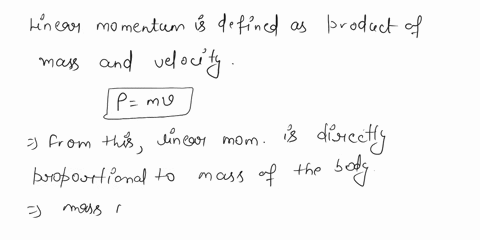 Linear momentum is defined as product of
mass and velocity.
P = mv
⇒ From this, linear mom. is directly
proportional to mass of the body
⇒ mass